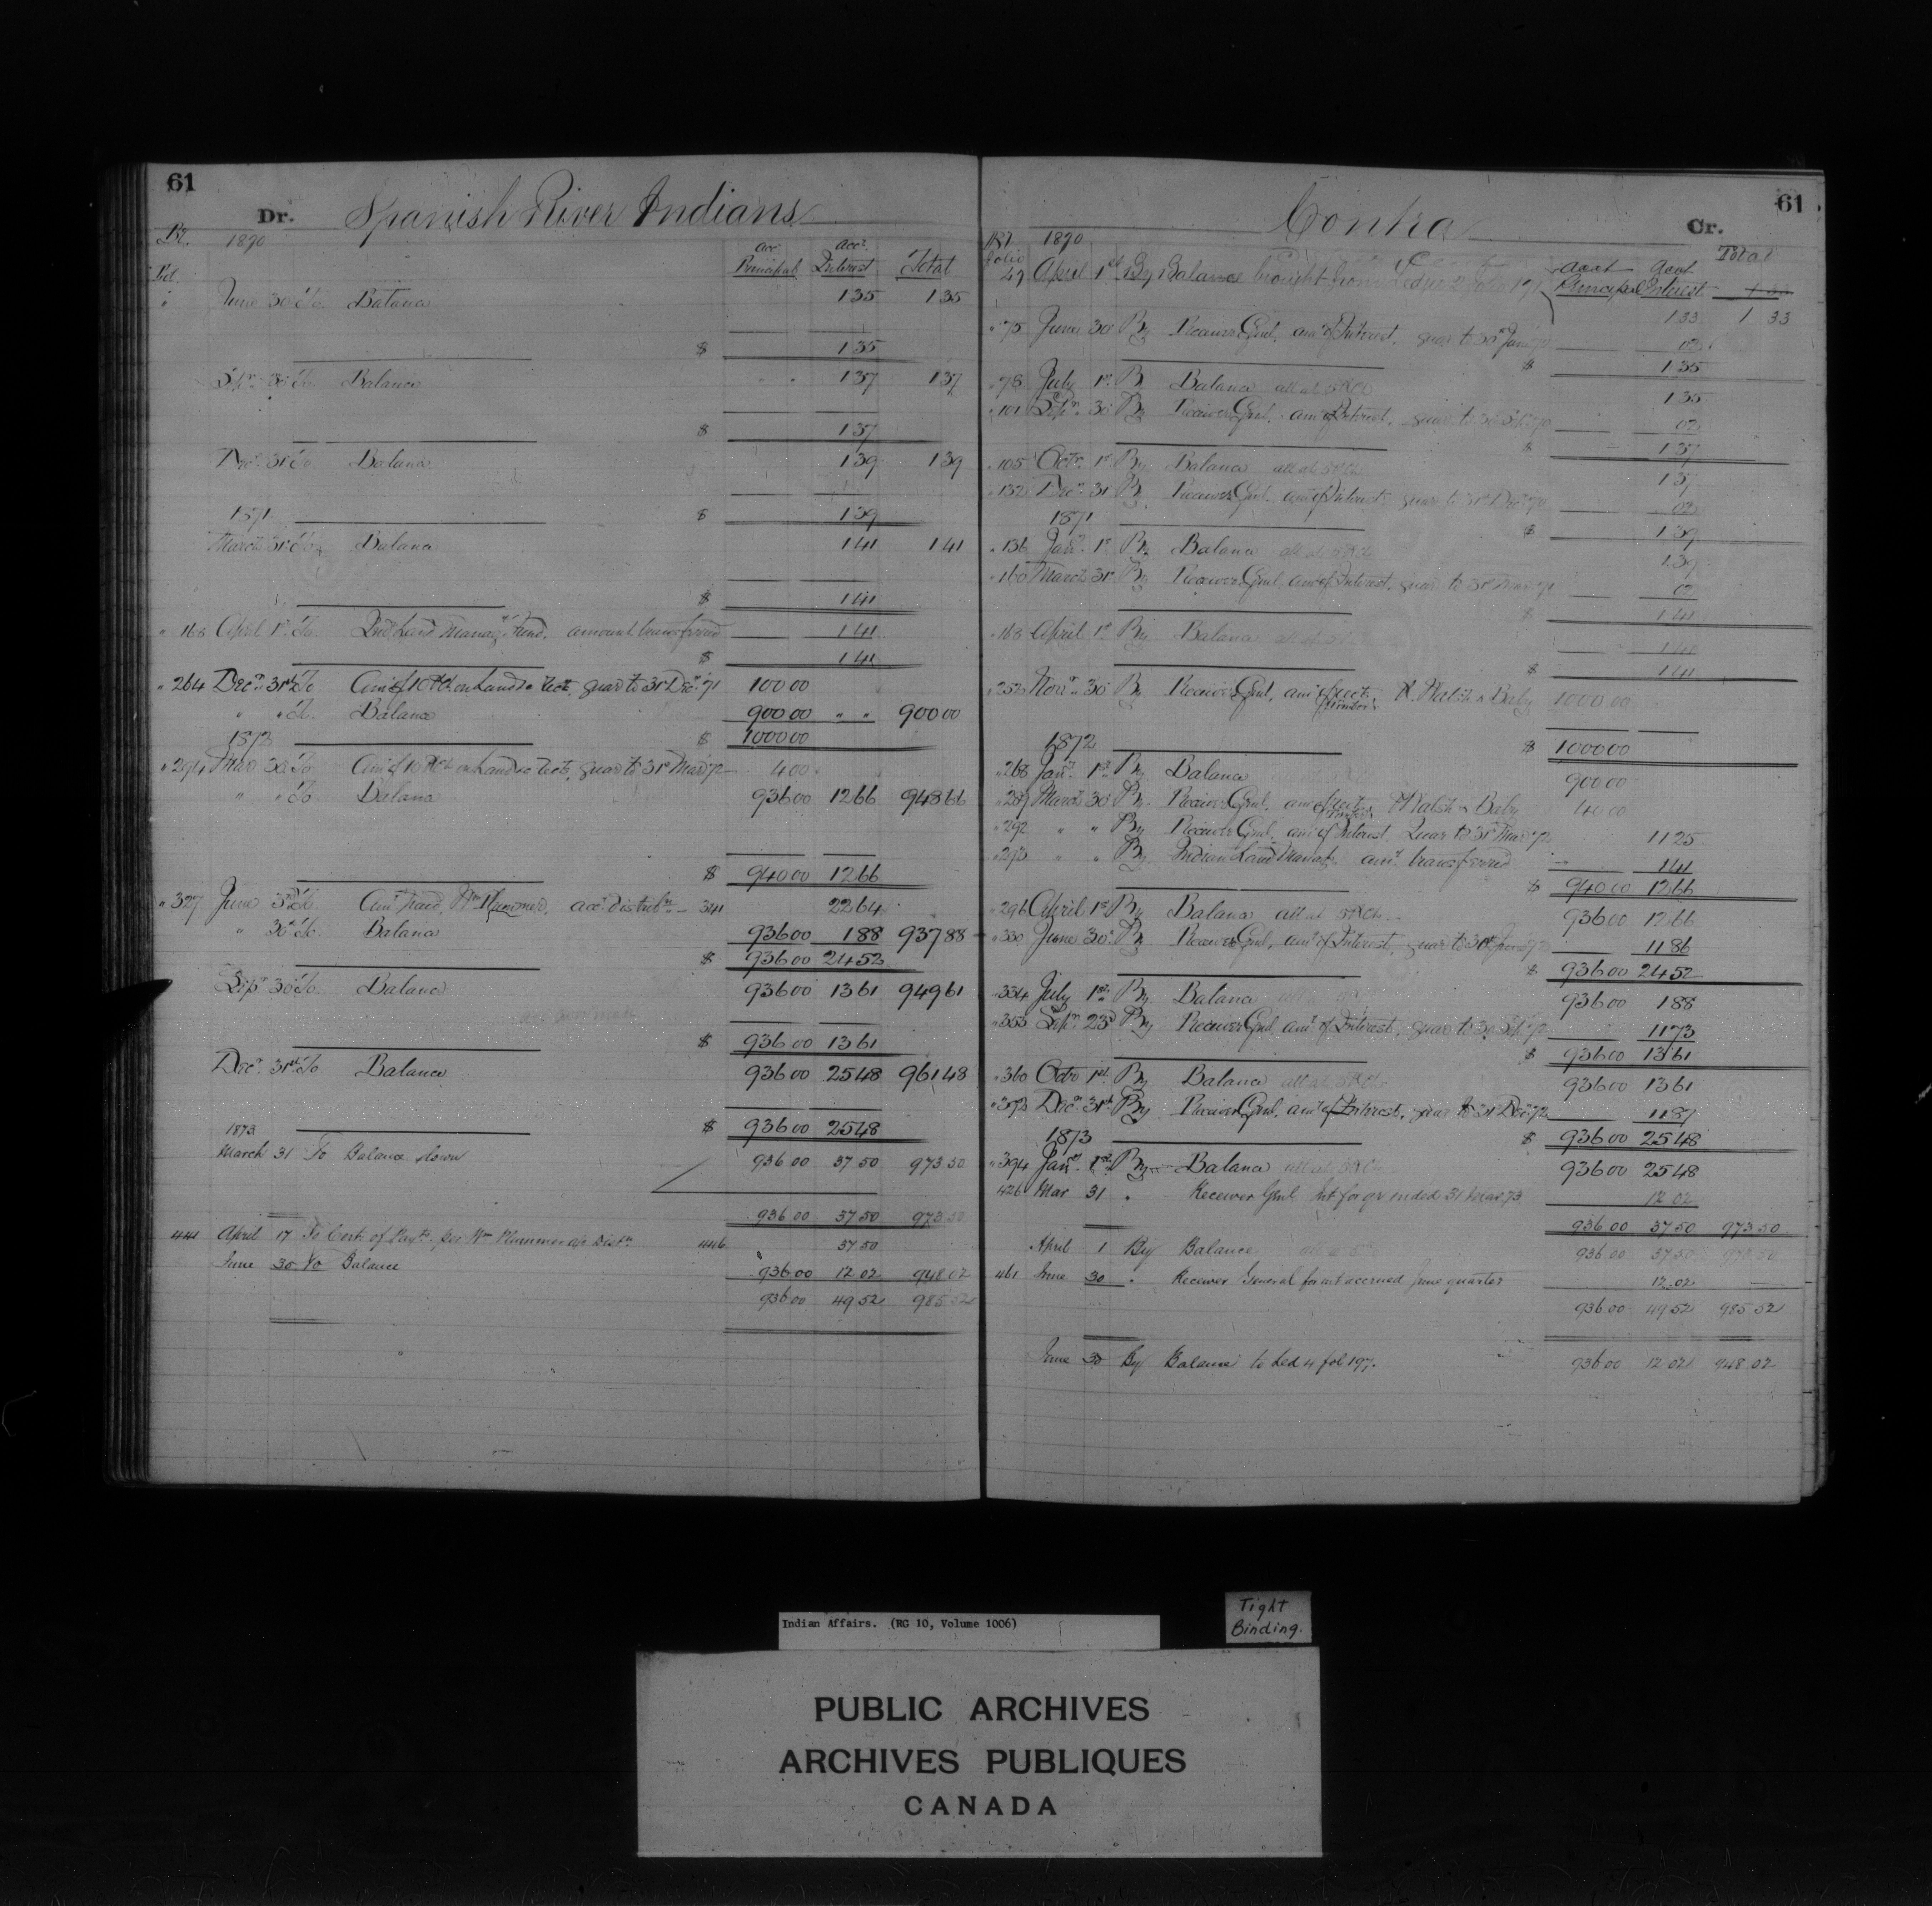 61
Dr. Spanish River Indians
1870
Acct Principal Acct Interest Total
June 30 To Balance 1 35 1 35
$ 1 35
Sepr 30 To Balance 1 37 1 37
$ 1 37
Decr 31 To Balance 1 39 1 39
1871 $ 1 39
March 31 To Balance 1 41 1 41
$ 1 41
" 168 April 1st To Ind Land Managt Fund, amount transferred 1 41
$ 1 41
" 264 Decr 31st To Amt of 10 P Ct on Land &c Rects, quar to 31 Decr 71 100 00
" " To Balance 900 00 " " 900 00
1872 $ 1000 00
" 294 Mar 30 To Amt of 10 P Ct on Land &c Rects, quar to 31st Mar 72 4 00
" " To Balance 936 00 12 66 948 66
$ 940 00 12 66
" 327 June 3rd To Amt paid, Wm Plummer, acct distribn 341 22 64
" 30th To Balance 936 00 1 88 937 88
$ 936 00 24 52
Sepr 30 To Balance 936 00 13 61 949 61
$ 936 00 13 61
Decr 31st To Balance 936 00 25 48 961 48
1873 $ 936 00 25 48
March 31 To Balance down 936 00 37 50 973 50
936 00 37 50 973 50
441 April 17 To Cert. of Payts, per Wm Plummer a/c Distn 446 37 50
June 30 To Balance 936 00 12 02 948 02
936 00 49 52 985 52
61
Contra Cr.
1870
folio Acct Principal Acct Interest Total
49 April 1st By Balance brought from Ledger 2 folio 171 1 33 1 33
" 75 June 30 By Receiver Genl, amt of Interest, quar to 30 June 70 02
$ 1 35
" 78 July 1st By Balance all at 5 P Ct 1 35
" 101 Sepr 30 By Receiver Genl, amt of Interest, quar to 30 Sep 70 02
$ 1 37
" 105 Octr 1st By Balance all at 5 P Ct 1 37
" 132 Decr 31 By Receiver Genl, amt of Interest, quar to 31st Decr 70 02
1871 $ 1 39
" 136 Jany 1st By Balance all at 5 P Ct 1 39
" 160 March 31st By Receiver Genl, amt of Interest, quar to 31st Mar 71 02
$ 1 41
" 168 April 1st By Balance all at 5 1 41
$ 1 41
" 252 Novr 30 By Receiver Genl, amt of rects, Timber, Walsh & Baby 1000 00
1872 $ 1000 00
" 268 Jany 1st By Balance 900 00
" 289 March 30 By Receiver Genl, amt of rects, Timber, Walsh & Baby 40 00
" 292 " " By Receiver Genl, amt of Interest, Quar to 31st Mar 72 11 25
" 293 " " By Indian Land Managt amt transferred 1 41
$ 940 00 12 66
" 296 April 1st By Balance all at 5 P Ct 936 00 12 66
" 330 June 30 By Receiver Genl, amt of Interest, quar to 30th June 72 11 86
$ 936 00 24 52
" 334 July 1st By Balance all at 5 936 00 1 88
" 353 Sepr 23d By Receiver Genl, amt of Interest, quar to 30 Sep 72 11 73
$ 936 00 13 61
" 360 Octo 1st By Balance all at 5 P Ct 936 00 13 61
" 373 Decr 31st By Receiver Genl, amt of Interest, quar to 31st Dec 72 11 87
1873 $ 936 00 25 48
" 394 Jany 1st By Balance all at 5 P Ct 936 00 25 48
426 Mar 31 " Receiver Genl Int for qr ended 31 Mar 73 12 02
936 00 37 50 973 50
April 1 By Balance all at 5 936 00 37 50 973 50
461 June 30 " Receiver General for int accrued June quarter 12 02
936 00 49 52 985 52
June 30 By Balance to Led 4 fol 197. 936 00 12 02 948 02
Indian Affairs. (RG 10, Volume 1006)
Tight
Binding.
PUBLIC ARCHIVES
ARCHIVES PUBLIQUES
CANADA